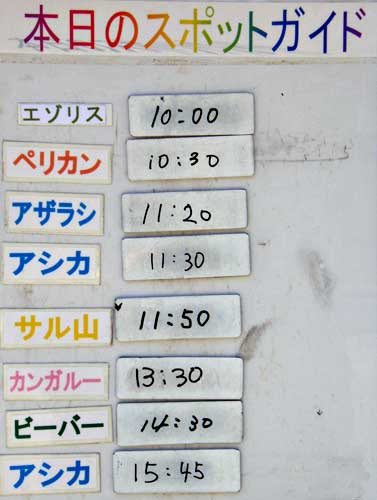 本日のスポットガイド
エゾリス 10:00
ペリカン 10:30
アザラシ 11:20
アシカ 11:30
サル山 11:50
カンガルー 13:30
ビーバー 14:30
アシカ 15:45